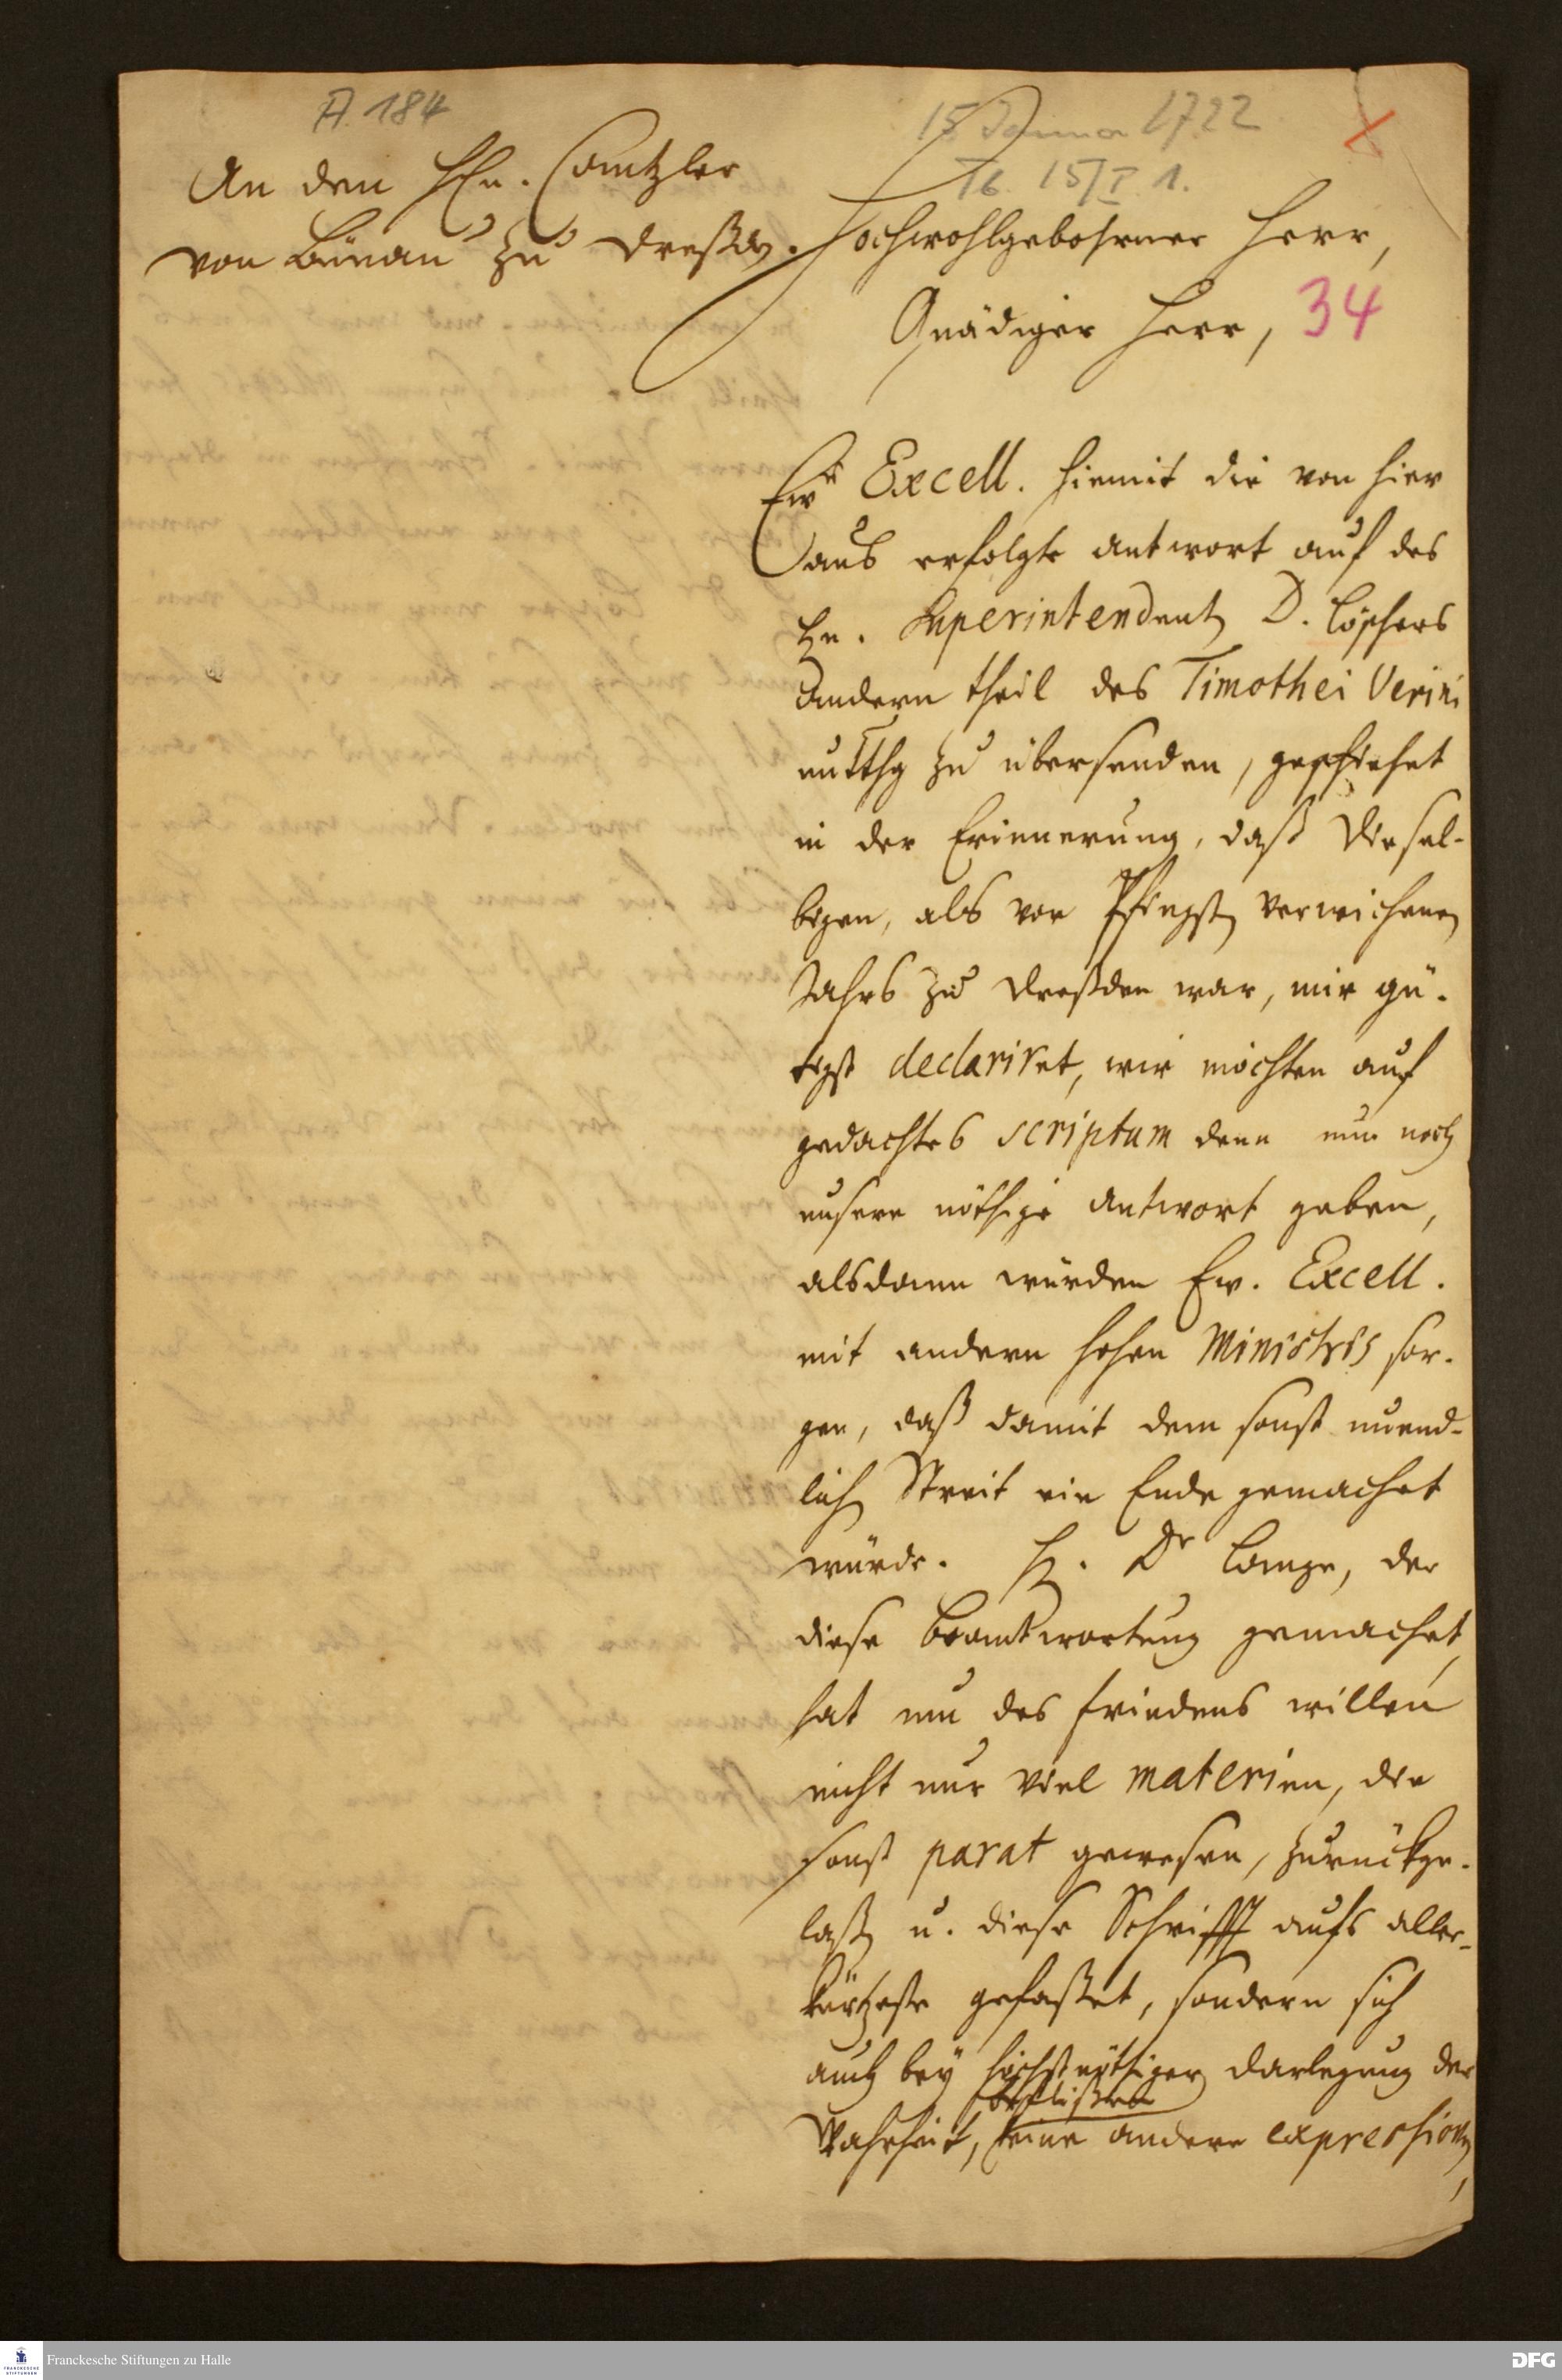 A. 184
15 Januar 1722
TG. 15/I 1.
An den HEn. Cantzler
von Bünau zu Dreßdn.
Hochwohlgebohrner Herr,
Gnädiger Herr,
34
Ewr Excell. hiemit die von hier
aus erfolgte antwort auf des
Hn. Superintendenten D. Löschers
andern theil des Timothei Verini
zu übersenden, geschiehet
in der Erinnerung, daß Diesel-
bigen, als vor Pfingsten verwichenen
Jahrs zu Dreßden war, mir gü-
tigst declariret, wir möchten auf
gedachtes scriptum denn nun noch
unsere nöthige antwort geben,
alsdann würden Ew. Excell.
mit andern hohen Ministris sor-
gen, daß damit dem sonst unend-
lichen Streit ein Ende gemachet
würde. H. Dr Lange, der
diese beantwortung gemachet,
hat um des friedens willen
nicht nur viel materien, die
sonst parat gewesen, zurückge-
laßen u. diese Schrifft aufs aller-
kürtzeste gefaßet, sondern sich
auch bey höchstnöthiger darlegung der
beflißen
Wahrheit, keine andere expressionen,
Franckesche Stiftungen zu Halle
FRANCKESCHE
STIFTUNGEN
DFG